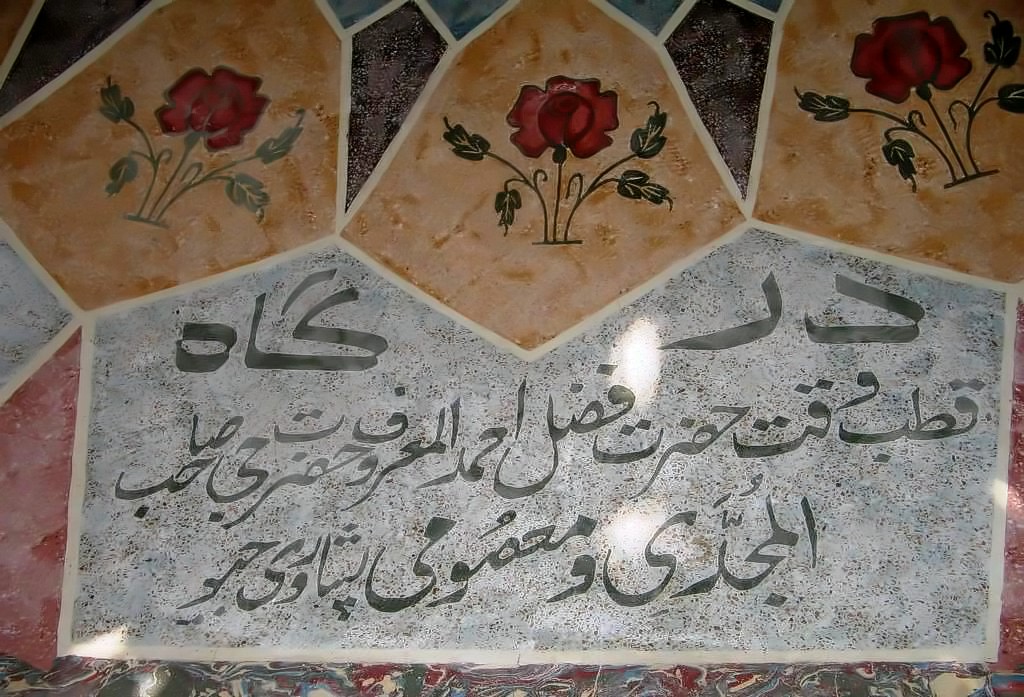 درگاہ
قطب وقت حضرت فضل احمد المعروف حضرت جی صاحب
المُجدَّدی و معصُومی پشاوری